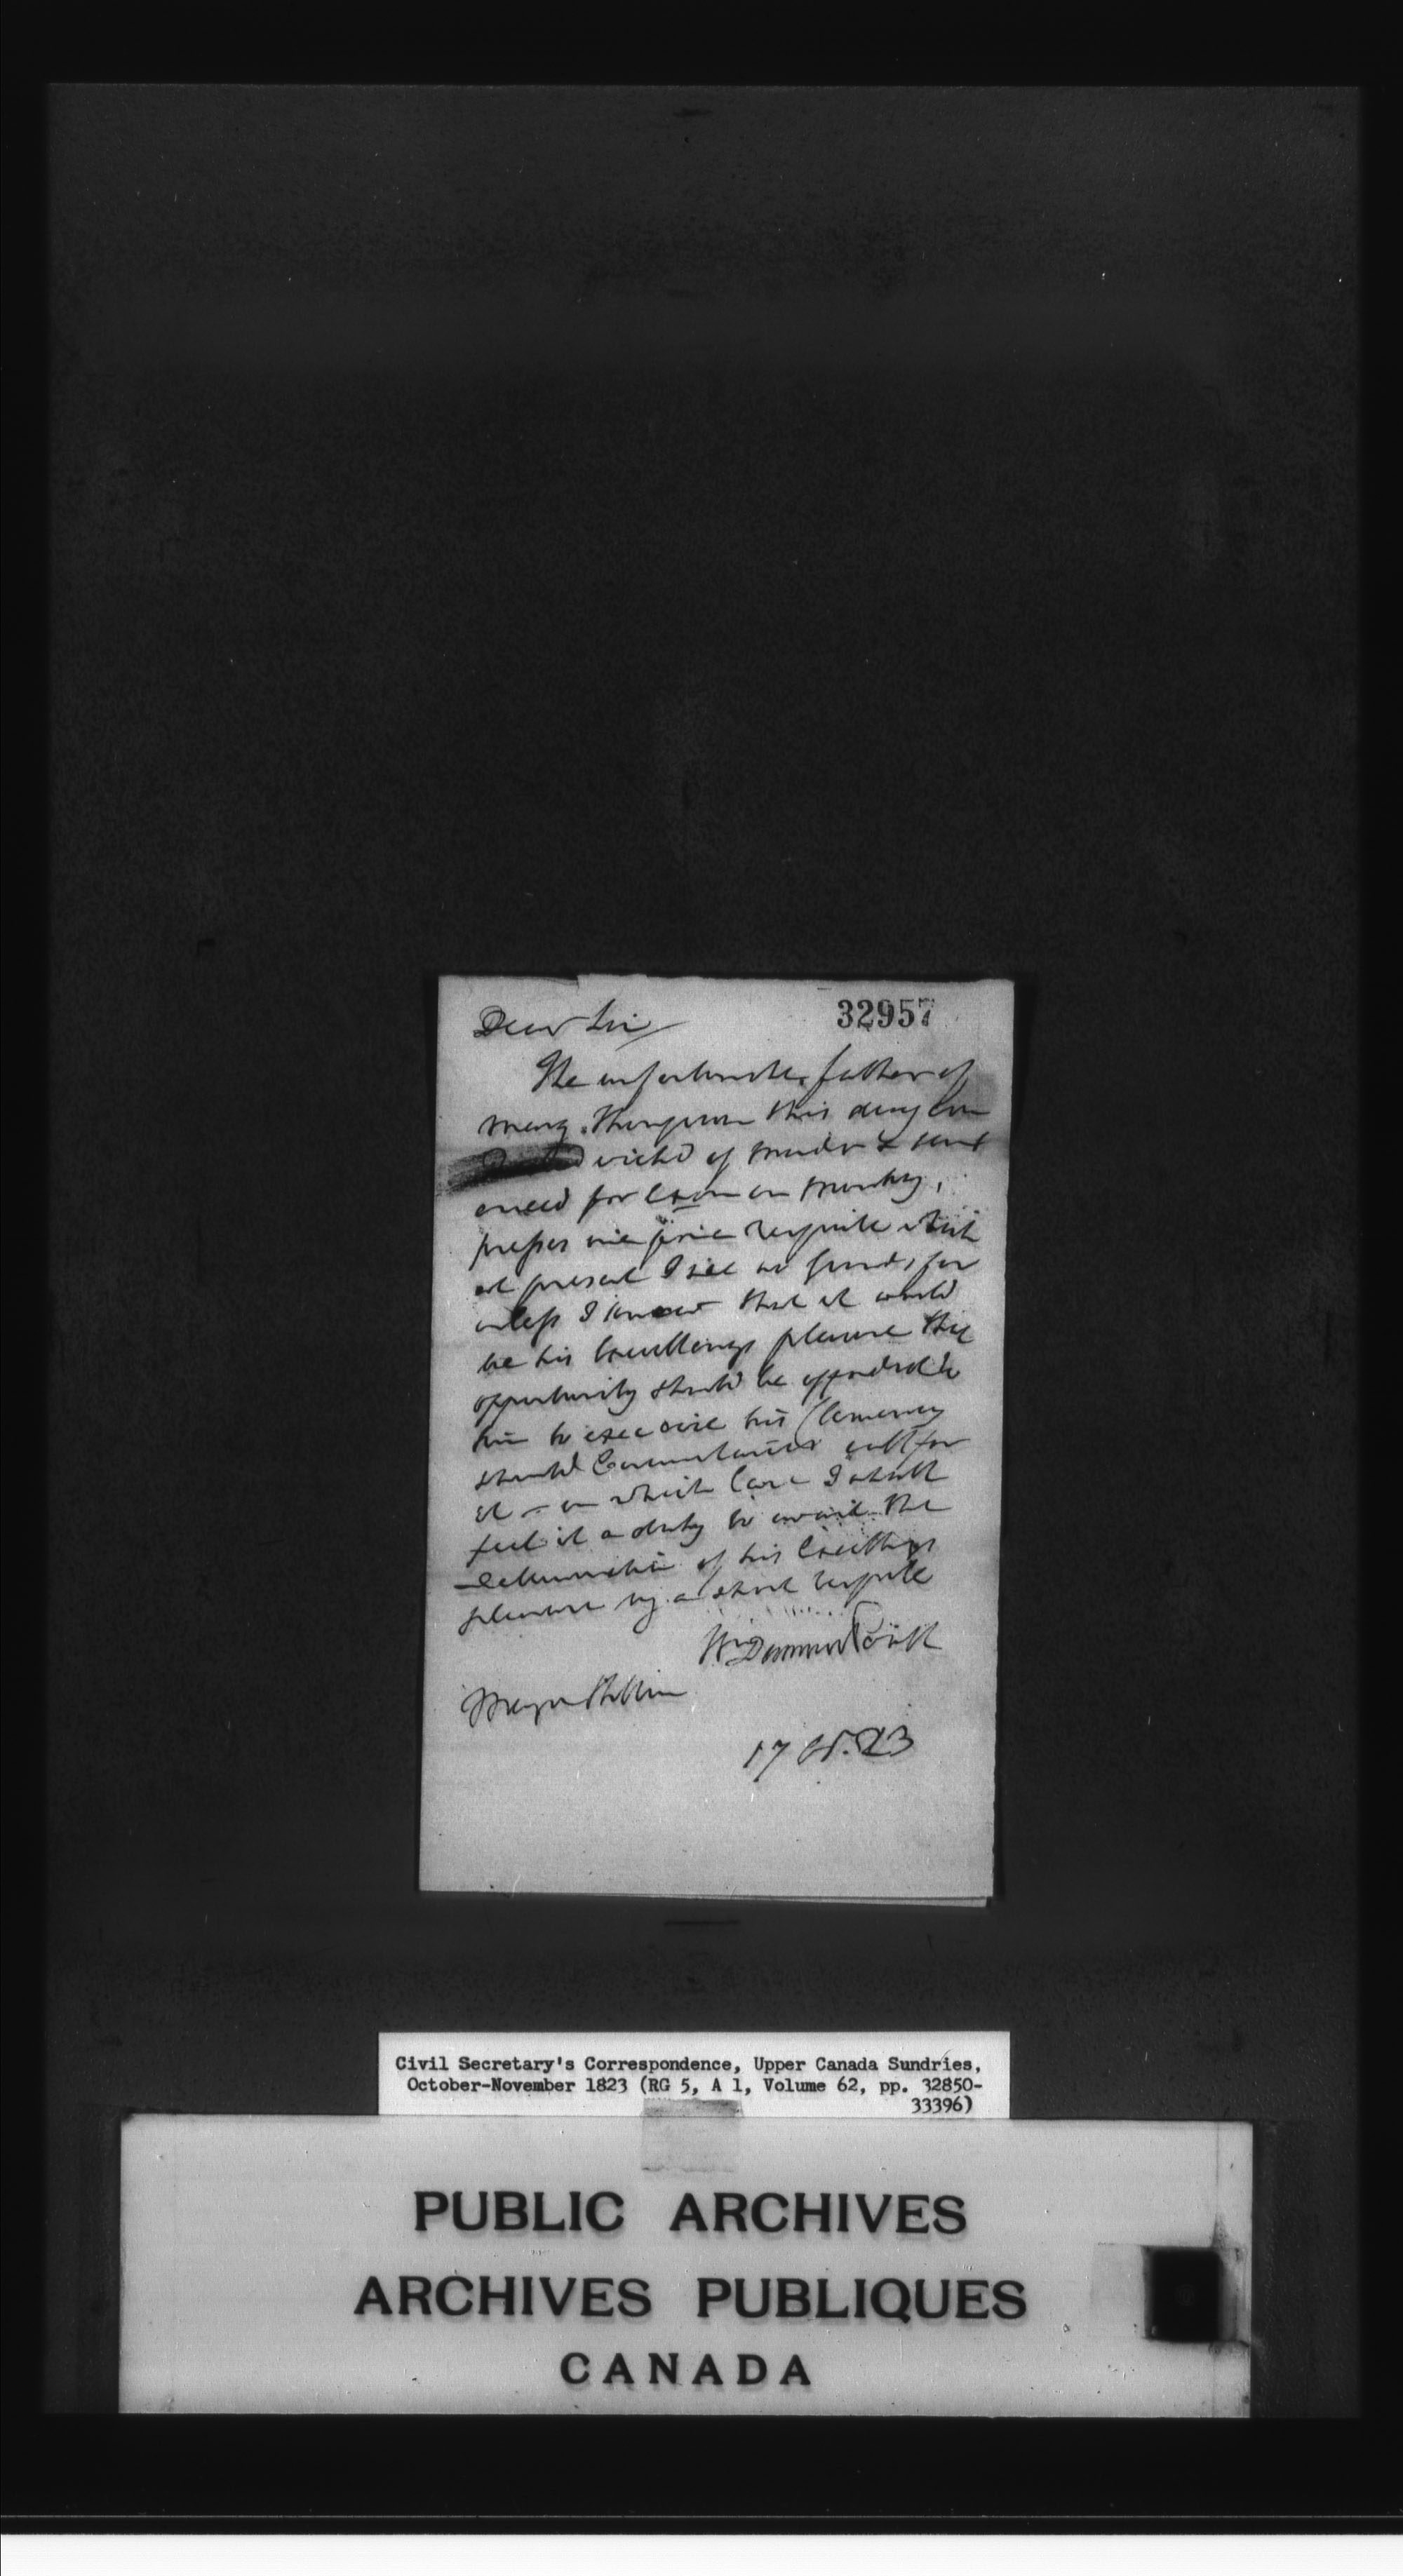 Dear Sir
32957
The unfortunate father of
Mary Thompson this day con
victed of murder & sent
enced for Exon on Monday,
presses me for a respite which
at present I see no grounds for
unless I knew that it would
be his Excellencys pleasure this
opportunity should be afforded to
him to exercise his Clemency
should Circumstances call for
it – in which Case I shall
feel it a duty to await the
of his Excellencys
pleasure by a short respite
Wm Dummer Powell
Major Hillier
17 Oct. 23
Civil Secretary's Correspondence, Upper Canada Sundries,
October-November 1823 (RG 5, A 1, Volume 62, pp. 32850-
33396)
PUBLIC ARCHIVES
ARCHIVES PUBLIQUES
CANADA